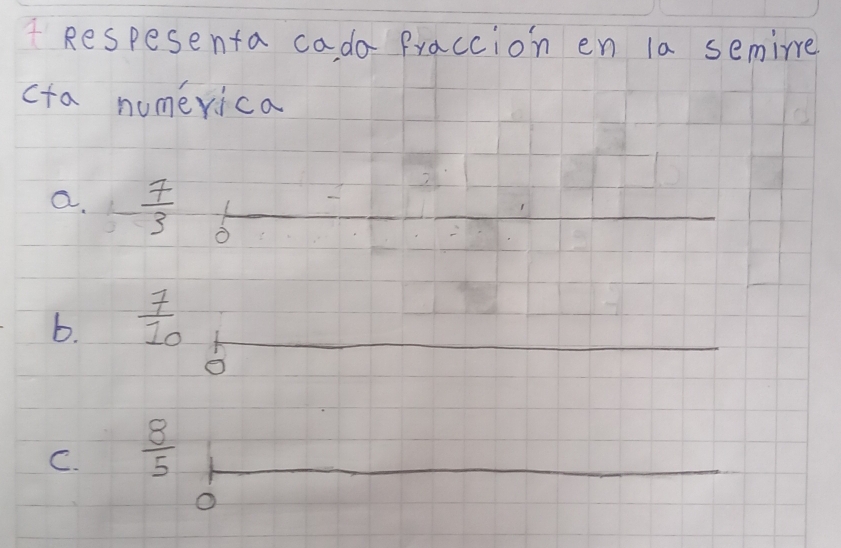 1 Respesenta cada fracción en la semirre
cta numérica
a. 7/3 0
b. 7/10 0
c. 8/5 0